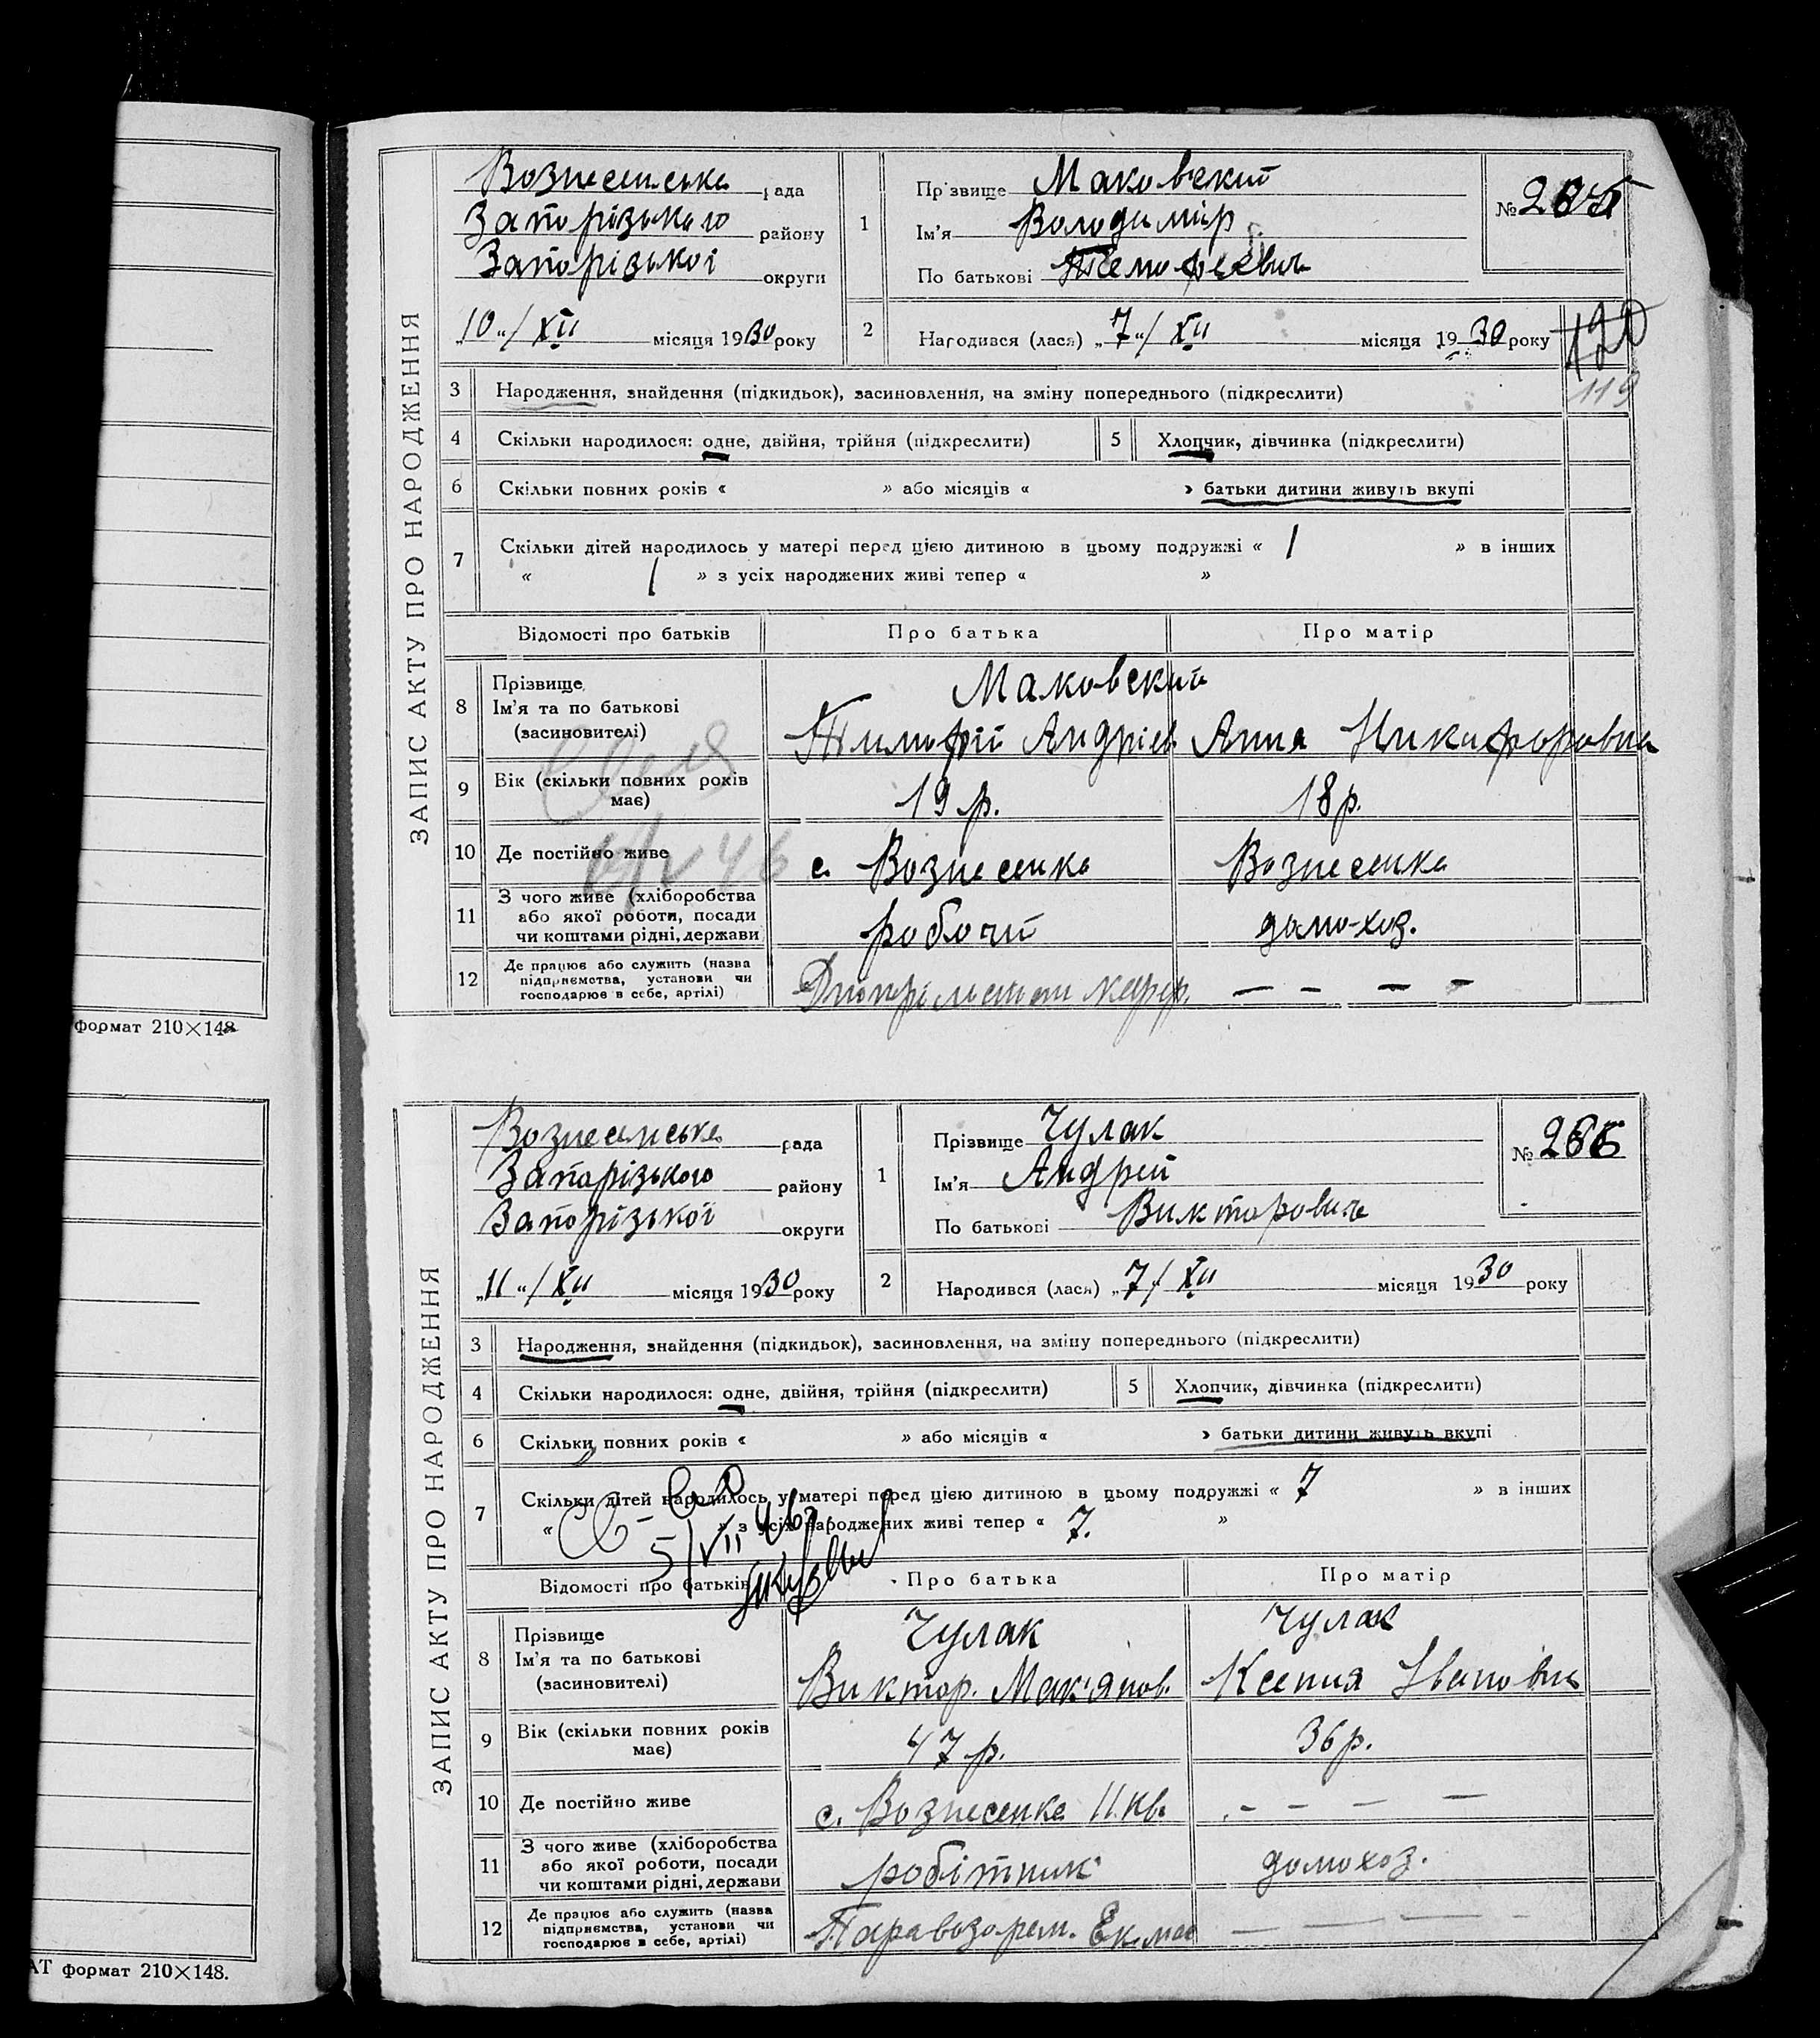 формат 210×148
АТ формат 210×148.
ЗАПИС АКТУ ПРО НАРОДЖЕННЯ
Вознесенська рада
Запорізького району
Запорізької округи
„10“/XII місяця 1930 року
1 Прізвище Маковский
Ім'я Володимир
По батькові
№ 265
2 Народився (лася) „7“/XII місяця 1930 року
120
119
3 Народження, знайдення (підкидьок), засиновлення, на зміну попереднього (підкреслити)
4 Скільки народилося: одне, двійня, трійня (підкреслити) 5 Хлопчик, дівчинка (підкреслити)
6 Скільки повних років « » або місяців « » батьки дитини живуть вкупі
7 Скільки дітей народилось у матері перед цією дитиною в цьому подружжі « 1 » в інших
« 1 » з усіх народжених живі тепер « »
Відомості про батьків Про батька Про матір
8 Прізвище, Ім'я та по батькові (засиновителі)
Маковский
Тимофій Андріев. Анна Никифоровна
9 Вік (скільки повних років має) 19 р. 18 р.
10 Де постійно живе с. Вознесенка Вознесенка
11 З чого живе (хліборобства або якої роботи, посади чи коштами рідні, держави робочий домо-хоз.
12 Де працює або служить (назва підприємства, установи чи господарює в себе, артілі) — - — -
ЗАПИС АКТУ ПРО НАРОДЖЕННЯ
Вознесенська рада
Запорізького району
Запорізької округи
„11“/XII місяця 1930 року
1 Прізвище Чулак
Ім'я Андрей
По батькові Викторович
№ 266
2 Народився (лася) „7“/XII місяця 1930 року
3 Народження, знайдення (підкидьок), засиновлення, на зміну попереднього (підкреслити)
4 Скільки народилося: одне, двійня, трійня (підкреслити) 5 Хлопчик, дівчинка (підкреслити)
6 Скільки повних років « » або місяців « » батьки дитини живуть вкупі
7 Скільки дітей народилось у матері перед цією дитиною в цьому подружжі « 7 » в інших
« » з усіх народжених живі тепер « 7. »
5/VII 46
Відомості про батьків Про батька Про матір
8 Прізвище Ім'я та по батькові (засиновителі)
Чулак Чулак
Виктор. Мак'янов. Ксения Ивановна
9 Вік (скільки повних років має) 47 р. 36 р.
10 Де постійно живе с. Вознесенка 11 кв. - - — —
11 З чого живе (хліборобства або якої роботи, посади чи коштами рідні, держави робітник домохоз.
12 Де працює або служить (назва підприємства, установи чи господарює в себе, артілі) Паравозорем. — — — -